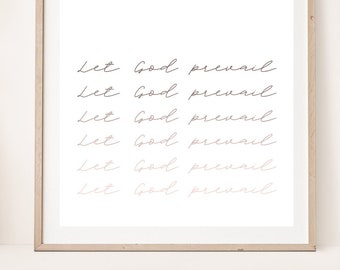 Let God prevail
Let God prevail
Let God prevail
Let God prevail
Let God prevail
Let God prevail